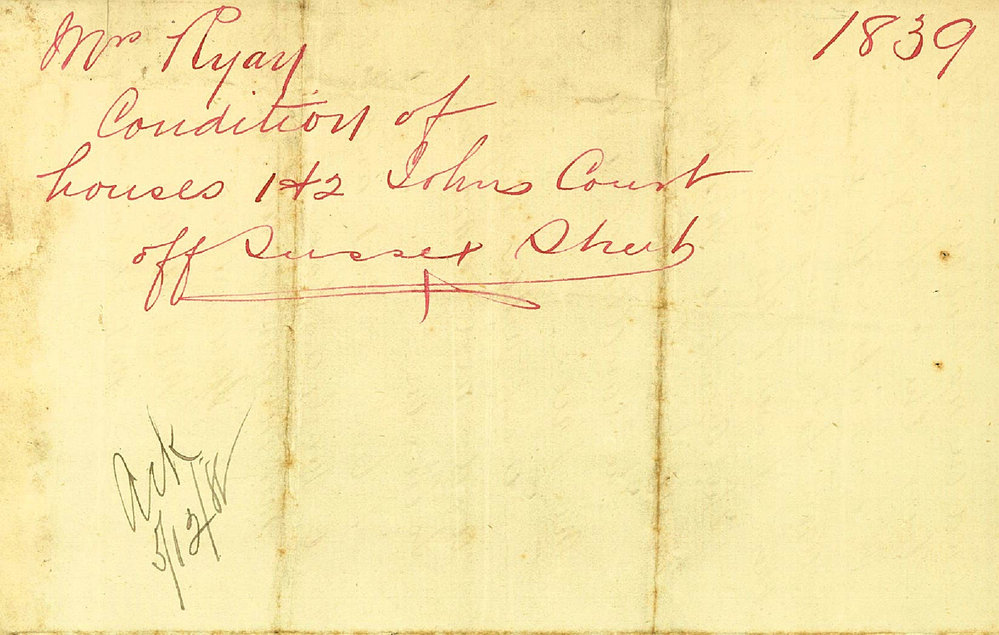 Mrs Ryan
1839
Condition of
houses 1 & 2 Johns Court
off Sussex Street
Ack
5/12/